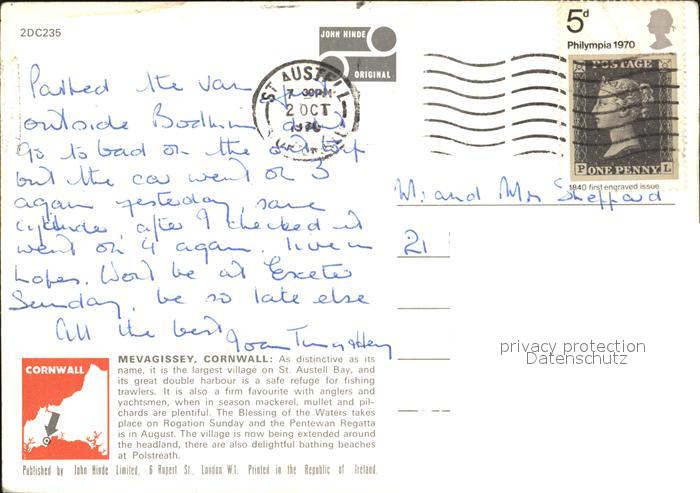 2DC235
JOHN HINDE
ORIGINAL
5d
Philympia 1970
POSTAGE
P ONE PENNY L
1840 first engraved issue
ST AUSTELL
7 30PM
2 OCT
1970
CORNWALL
Parked the van
outside Bodmin
go to bad on the
but the car went on 3
again yesterday, same
cylinder, after I checked it
went on 4 again. live in
hopes. Won't be at Exeter
Sunday, be so late else
All the best
Mr and Mrs Sheppard
21
privacy protection
Datenschutz
CORNWALL
MEVAGISSEY, CORNWALL: As distinctive as its
name, it is the largest village on St. Austell Bay, and
its great double harbour is a safe refuge for fishing
trawlers. It is also a firm favourite with anglers and
yachtsmen, when in season mackerel, mullet and pil-
chards are plentiful. The Blessing of the Waters takes
place on Rogation Sunday and the Pentewan Regatta
is in August. The village is now being extended around
the headland, there are also delightful bathing beaches
at Polstreath.
Published by John Hinde Limited, 6 Rupert St., London W.1. Printed in the Republic of Ireland.